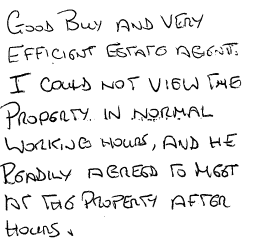 GOOD BUY AND VERY
EFFICIENT ESTATE AGENT.
I COULD NOT VIEW THE
PROPERTY IN NORMAL
WORKING HOURS, AND HE
READILY AGREED TO MEET
AT THE PROPERTY AFTER
HOURS.